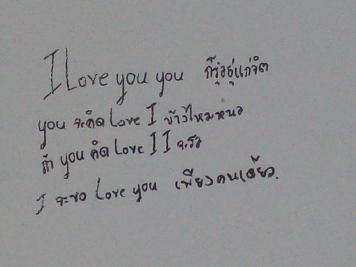 I Love you you ก็รู้อยู่แก่จิต
you จะคิด Love I บ้างไหมหนอ
ถ้า you คิด Love I I จะรอ
I จะขอ Love you เพียงคนเดียว.